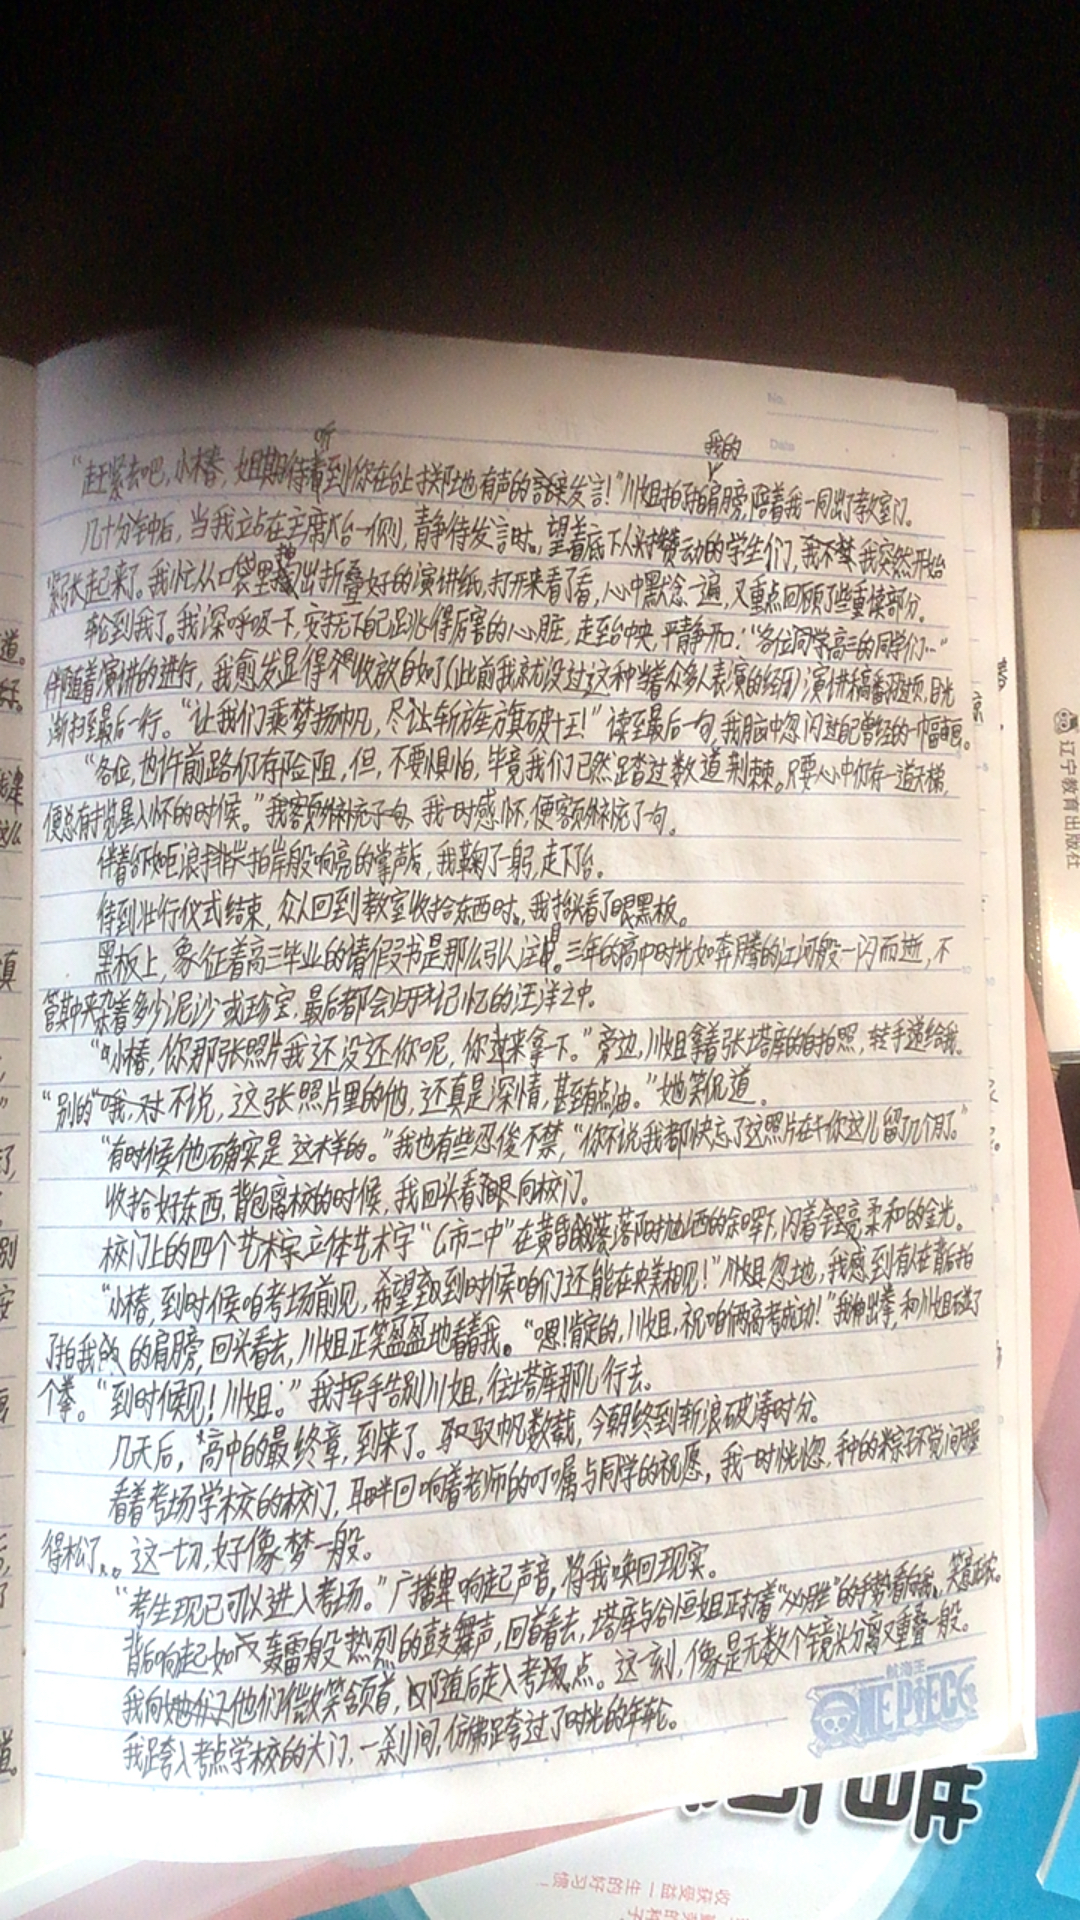 No.
Date
听
我的
“赶紧去吧，小椿，姐期待着到你在台上掷地有声的发言！”川姐拍拍肩膀，陪着我一同出了教室门。
几十分钟后，当我立站在主席台一侧，静待发言时，望着底下人头攒动的学生们，我突然开始
紧张起来了。我忙从口袋里掏出折叠好的演讲纸，打开来看了看，心中默念一遍，又重点回顾了些重读部分。
轮到我了。我深呼吸一下，安抚下自己跳得厉害的心脏，走至台中央，平静开口：“各位同学高三的同学们…”
伴随着演讲的进行，我愈发显得收放自如了（此前我就没过这种当着众多人表演的经历）演讲稿翻过页，目光
渐扫至最后一行。“让我们乘梦扬帆，尽让斩旌旗破十王！”读至最后一句，我脑中忽闪过自己曾经的一幅画。
“各位，也许前路仍存险阻，但，不要惧怕，毕竟我们已然踏过数道荆棘。只要心中仍存一道天梯，
便总有揽星入怀的时候。”我一时感怀，便额外补充了句。
伴着如巨浪拍岸般响亮的掌声后，我鞠了一躬，走下台。
待到壮行仪式结束，众人回到教室收拾东西时，我抬头看了眼黑板。
黑板上，象征着高三毕业的请假书是那么引人注目。三年的高中时光如奔腾的江河般一闪而逝，不
管其中夹杂着多少泥沙或珍宝，最后都会归于记忆的汪洋之中。
“小椿，你那张照片我还没还你呢，你过来拿下。”旁边，川姐拿着张塔库的自拍照，转手递给我。
“别的不说，这张照片里的他，还真是深情，甚至有点油。”她笑侃道。
“有时候他确实是这样的。”我也有些忍俊不禁，“你不说我都快忘了这照片在你这儿留了几个月了。”
收拾好东西，背包离校的时候，我回头看了眼向校门。
校门上的四个立体艺术字“C市二中”在黄昏落阳的余晖下，闪着锃亮柔和的金光。
“小椿，到时候咱考场前见，希望到时候咱们还能在央美相见！”忽地，我感到有人在背后拍
了拍我的肩膀，回头看去，川姐正笑盈盈地看着我。“嗯！肯定的，川姐，祝咱俩高考成功！”我伸出拳，和川姐碰了
个拳。“到时候见！川姐。”我挥手告别川姐，往塔库那儿行去。
几天后，高中的最终章，到来了。驭帆数载，今朝终到斩浪破涛时分。
看着考场学校的校门，耳畔回响着老师的叮嘱与同学的祝愿，我一时恍惚，手中的粽子不觉间握
得松了。这一切，好像梦一般。
“考生现已可以进入考场。”广播里响起声音，将我唤回现实。
背后响起如轰雷般热烈的鼓舞声，回首看去，塔库与谷恒姐正打着“必胜”的手势看向我，笑意正浓。
我向他们微笑颔首，即随后走入考点。这一刻，像是无数个镜头分离又重叠一般。
我跨入考点学校的大门，一刹间，仿佛跨过了时光的年轮。
航海王
ONE PIECE
辽宁教育出版社
收获受益一生的好习惯